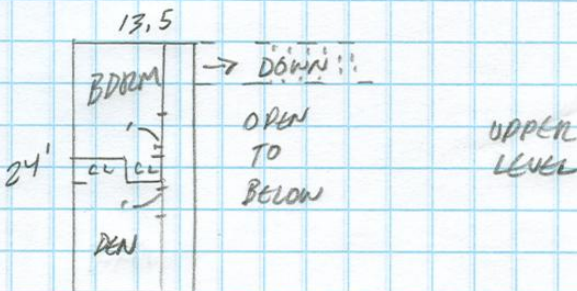 13,5
BDRM
→ DOWN
OPEN
TO
BELOW
UPPER
LEVEL
24'
CL CL
DEN